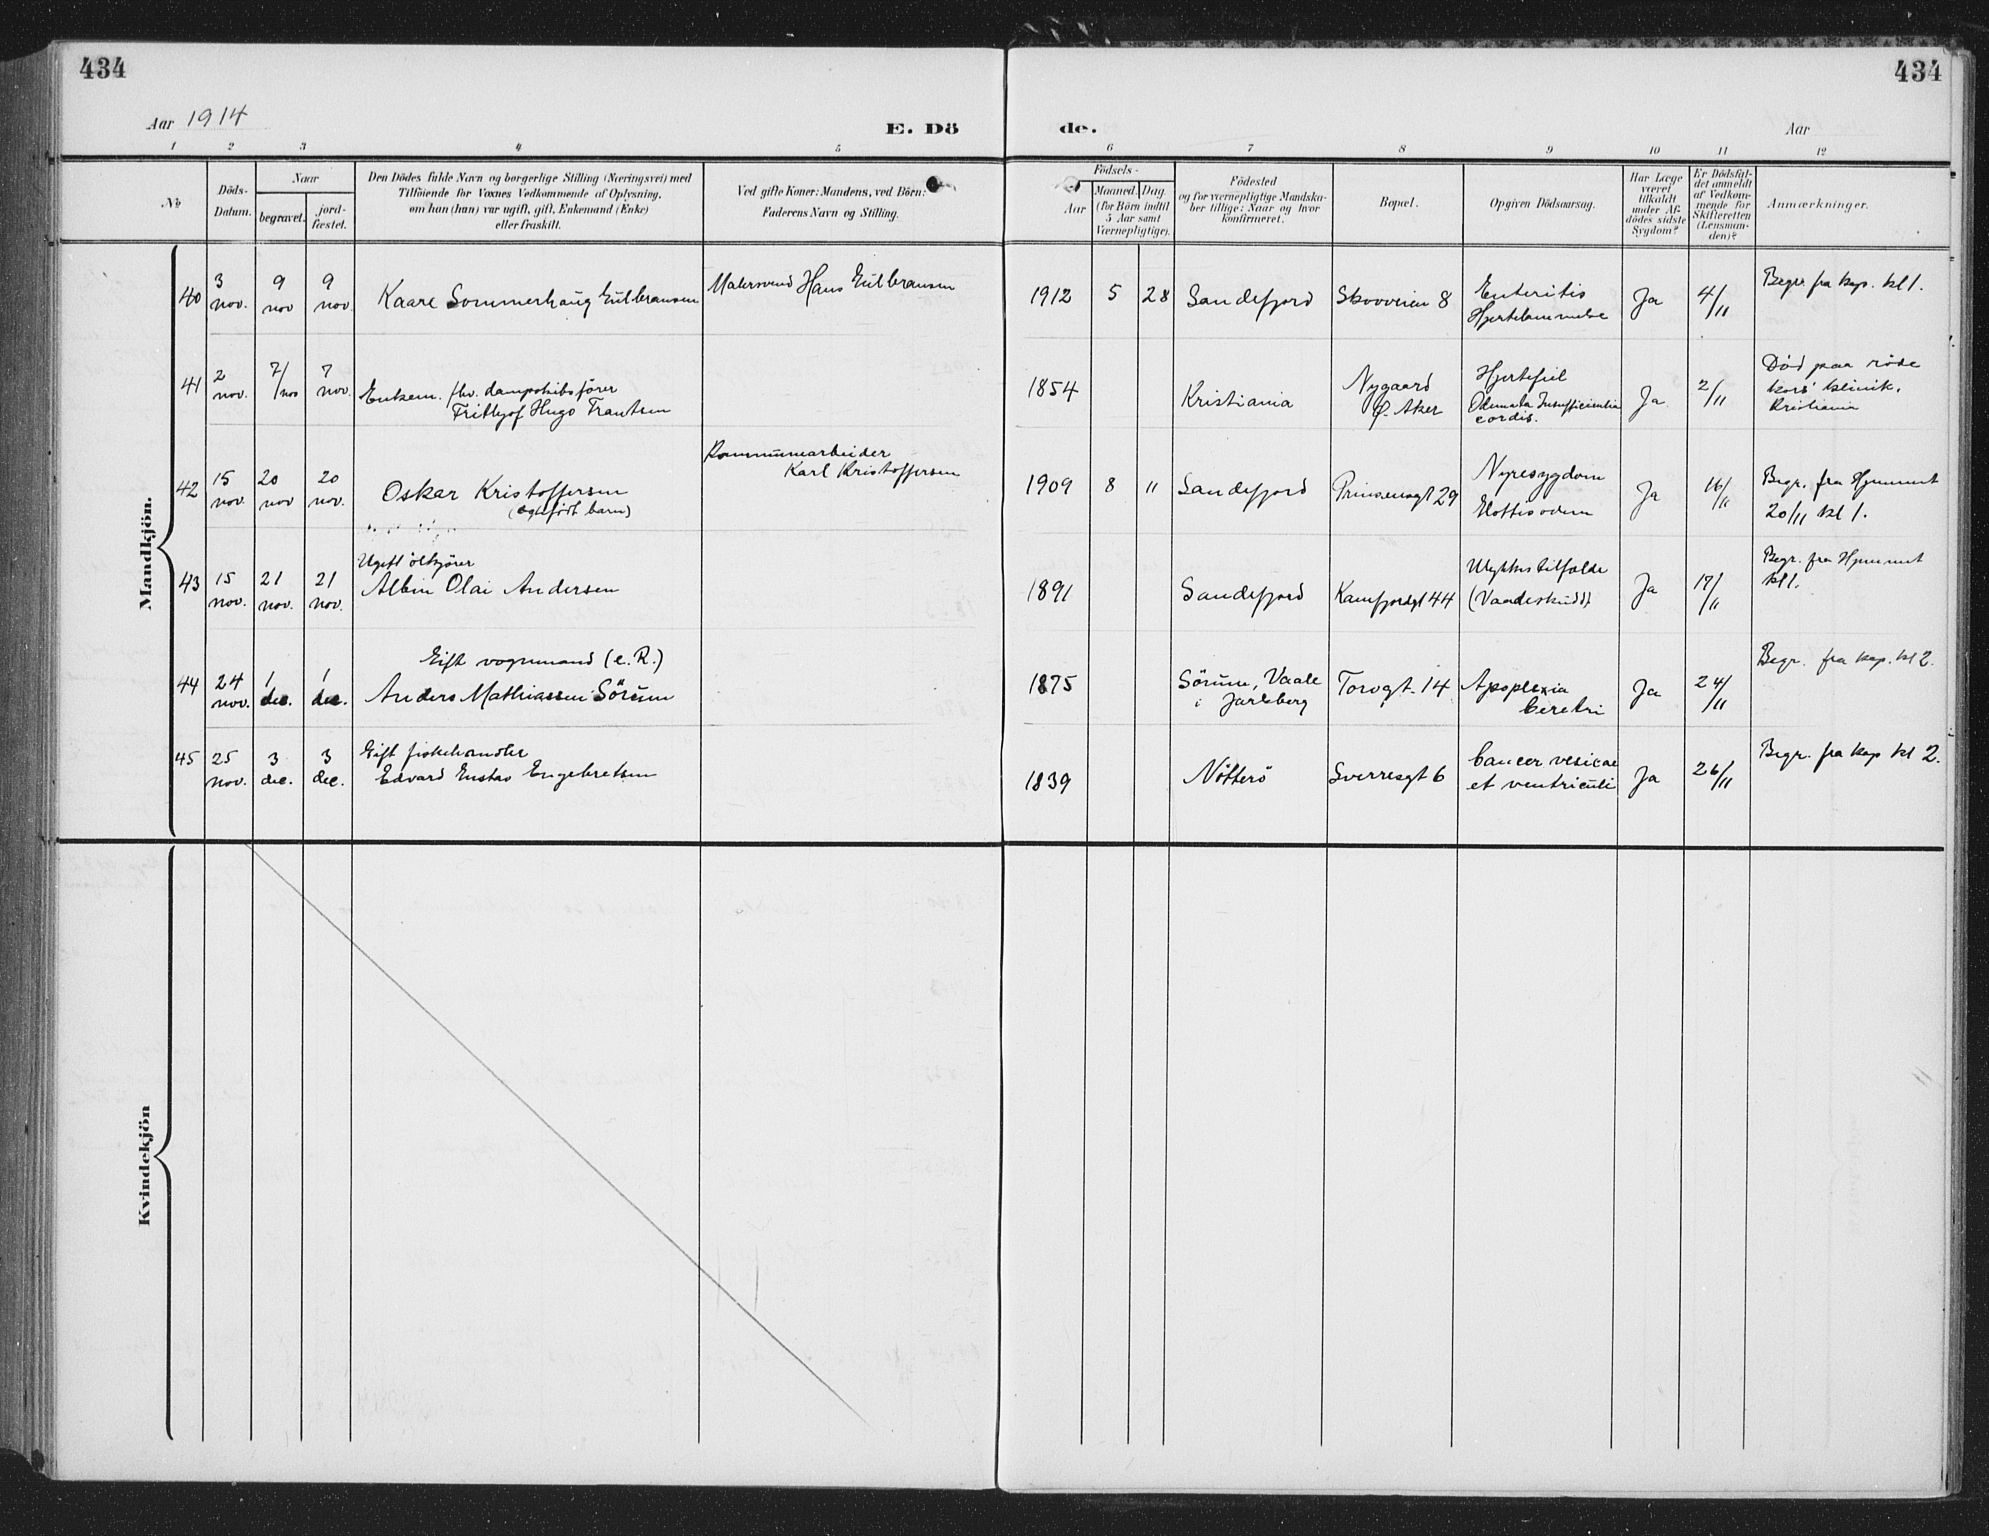 434
434
Aar 1914
E. Dö
de.
Aar
1 2 3 4 5 6 7 8 9 10 11 12
№
Döds-
Datum.
Naar
begravet.
jord-
fæstet.
Den Dödes fulde Navn og borgerlige Stilling (Næringsvei) med
Tilföiende for Voxnes Vedkommende af Oplysning,
om han (hun) var ugift, gift, Enkemand (Enke)
eller fraskilt.
Ved gifte Koner: Mandens, ved Börn:
Faderens Navn og Stilling.
Födsels-
Aar
Maaned.
Dag.
(for Börn indtil
5 Aar samt
Værnepligtige).
Födested
og for værnepligtige Mandska-
ber tillige: Naar og hvor
konfirmeret.
Bopæl.
Opgiven Dödsaarsag.
Har Læge
været
tilkaldt
under Af-
dödes sidste
Sygdom?
Er Dödsfal-
det anmeldt
af Vedkom-
mende for
Skifteretten
(Lensman-
den)?
Anmærkninger.
Mandkjön.
40
3
nov.
9
nov
9
nov.
Kaare Sommerhaug Gulbransen
Malersvend Hans Gulbransen
1912 5 28
Sandefjord
Skovveien 8
Enteritis
Hjertelammelse
Ja
4/11
Begr. fra kap. kl 1.
41
2
nov.
7/nov
7
nov.
Enkem. fhv. dampskibsfører
Frithjof Hugo Frantsen
1854
Kristiania
Nygaard
Ø. Aker
Hjertefeil
Insufficientia
cordis.
Ja
2/11
Død paa røde
kors' klinik,
Kristiania
42
15
nov.
20
nov
20
nov.
Oskar Kristoffersen
(ægtefødt barn)
Kommunearbeider
Karl Kristoffersen
1909 8 11
Sandefjord
Prinsensgt 29
Nyresygdom
Glottisødem
Ja
16/11
Begr. fra Hjemmet
20/11 kl 1.
43
15
nov.
21
nov.
21
nov.
Ugift ølkjører
Albin Olai Andersen
1891
Sandefjord
Kamfjordgt 44
Ulykkestilfælde
(Vaadeskudd)
Ja
17/11
Begr. fra Hjemmet
kl 1.
44
24
nov.
1
dec.
1
dec.
Gift vognmand (e. R.)
Anders Mathiassen Sörum
1875
Sörum, Vaale
i Jarlsberg
Torvgt. 14
Apoplexia
cerebri
Ja
24/11
Begr. fra kap. kl 2.
45
25
nov.
3
dec.
3
dec.
Gift fiskehandler
Edvard Gustav Engebretsen
1839
Nötterö
Sverresgt 6
Cancer vesicae
et ventriculi
Ja
26/11
Begr. fra kap kl 2.
Kvindekjön